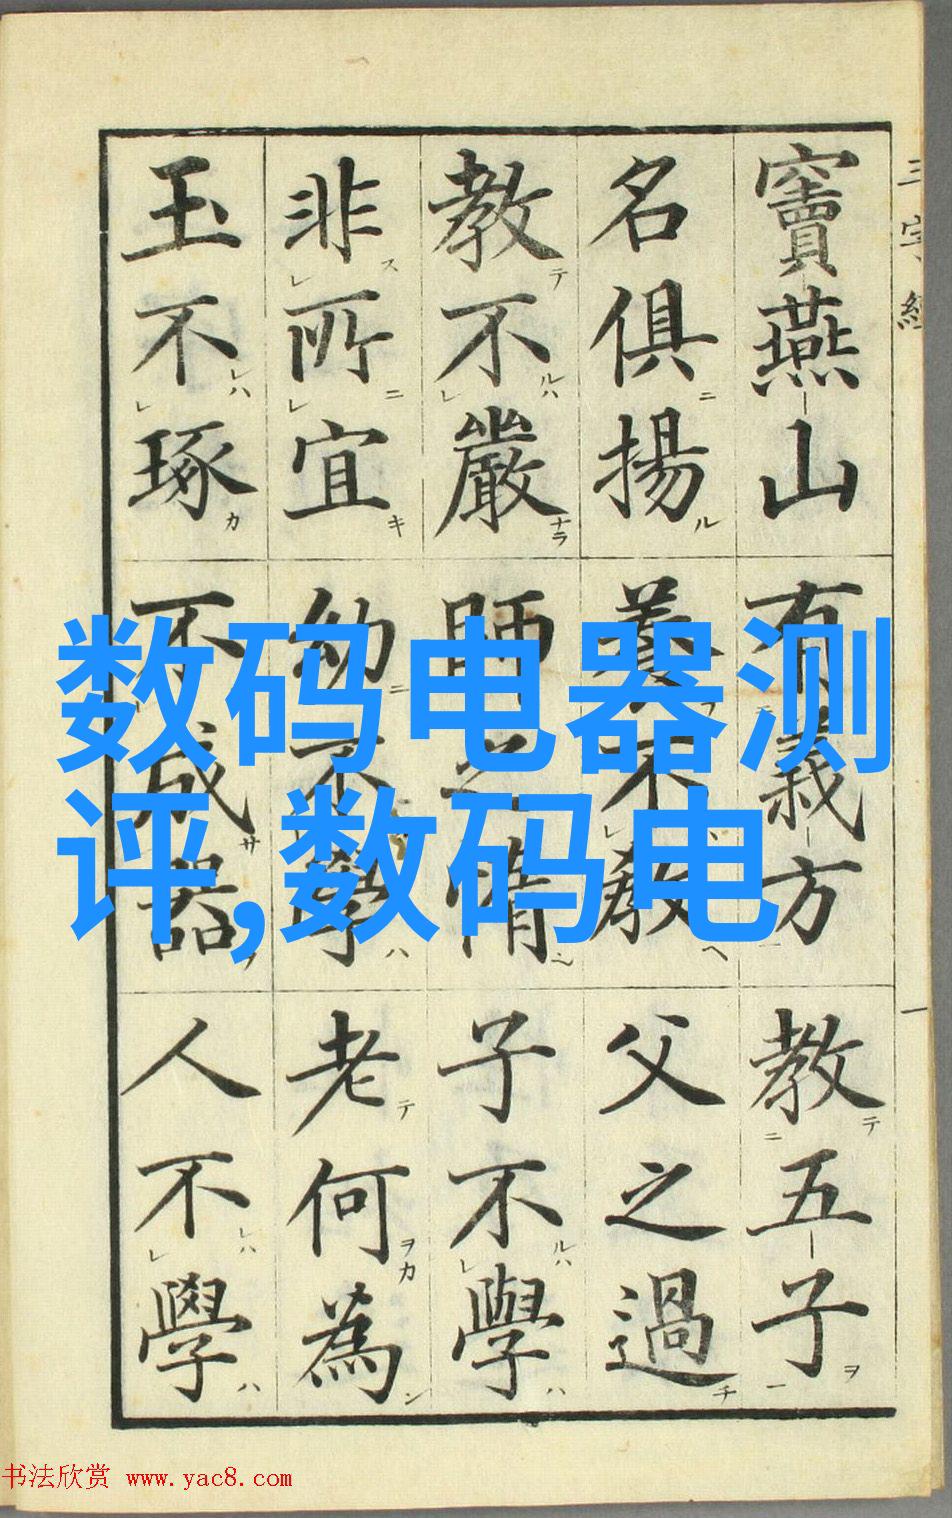 三字經
一
竇燕山有義方教五子
名俱揚養不教父之過
教不嚴師之惰子不學
非所宜幼不學老何為
玉不琢不成器人不學
数码电器测
评,数码电
书法欣赏 www.yac8.com